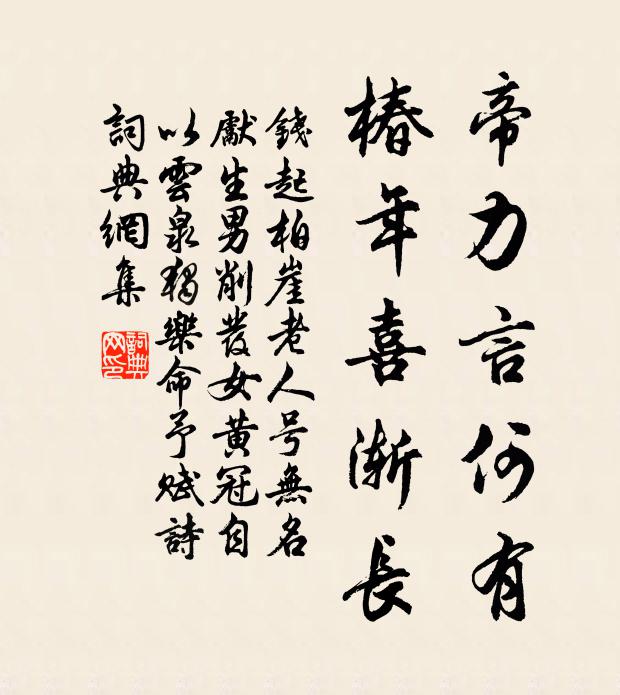 帝力言何有
椿年喜漸長
錢起柏崖老人号無名
獻生男削發女黃冠自
以雲泉獨樂命予賦詩
詞典網集
詞典
网印